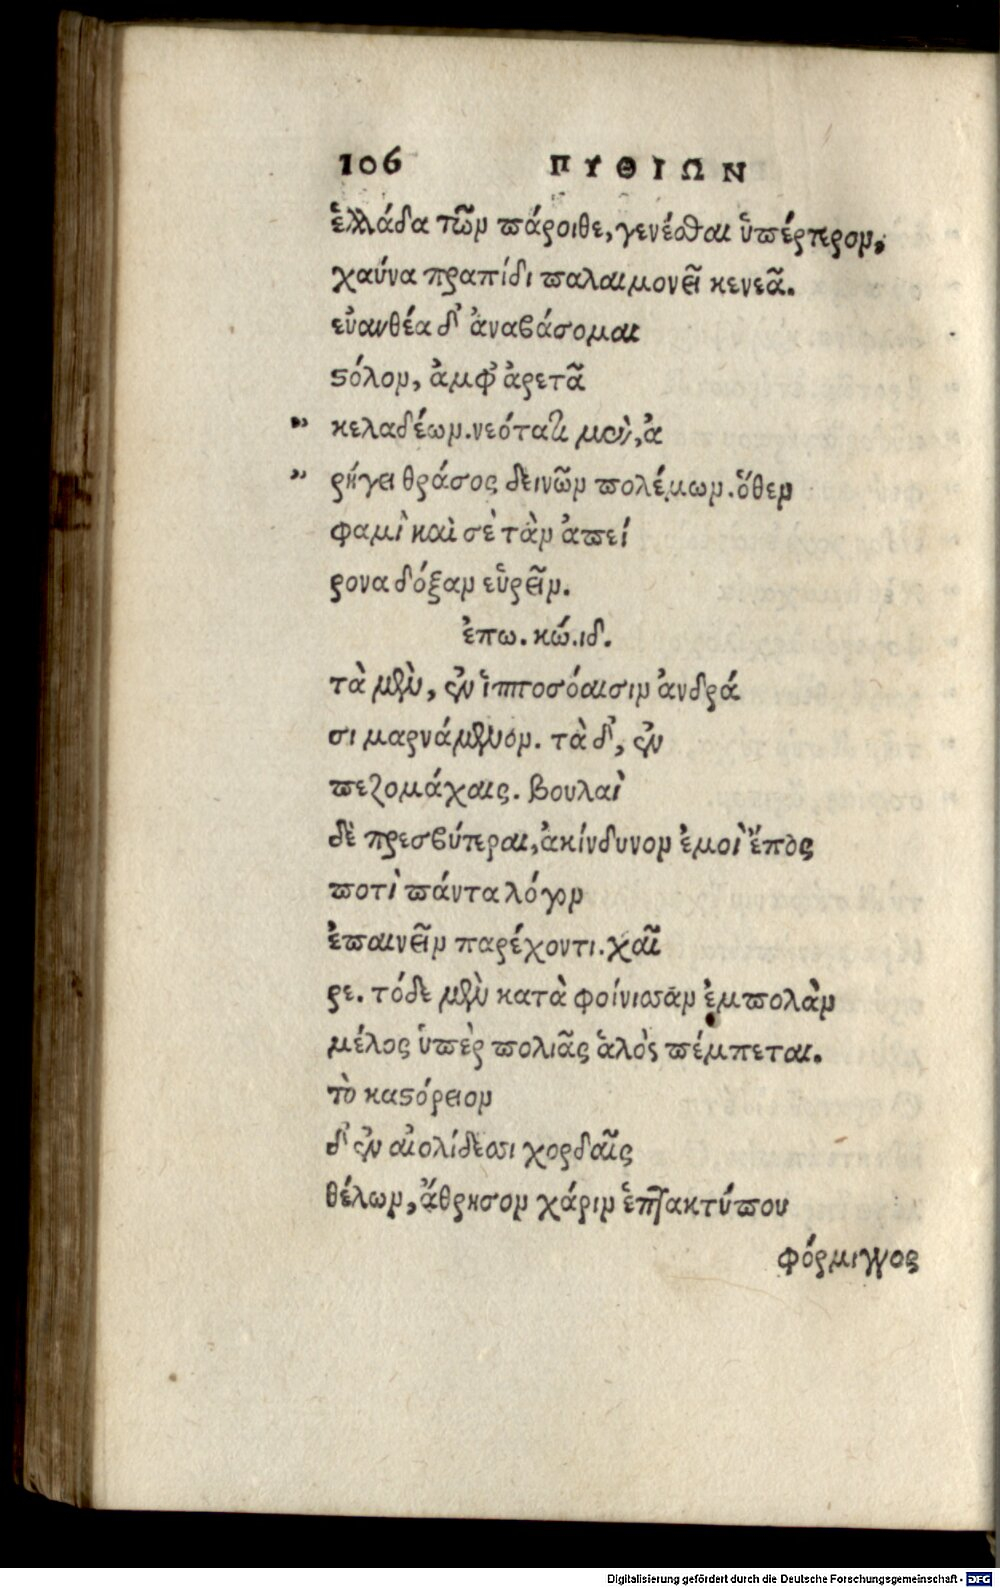 106 ΠΥΘΙΩΝ
ἑλλάδα τῶν πάροιθε, γενέσθαι ὑπέρτερον,
χαύνα πραπίδι παλαιμονεῖ κενεᾶ.
εὐανθέα δ' ἀναβάσομαι
στόλον, ἀμφ' ἀρετᾶ
" κελαδέων. νεότατι μὲν, ἀ
" ρήγει θράσος δεινῶν πολέμων. ὅθεν
φαμὶ καὶ σὲ τὰν ἀπεί
ρονα δόξαν εὑρεῖν.
ἐπω. κώ. ιδ.
τὰ μὲν, ἐν ἱπποσόαισιν ἀνδρά
σι μαρνάμενον. τὰ δ', ἐν
πεζομάχαις. βουλαὶ
δὲ πρεσβύτεραι, ἀκίνδυνον ἐμοὶ ἔπος
ποτὶ πάντα λόγον
ἐπαινεῖν παρέχοντι. χαῖ
ρε. τόδε μὲν κατὰ φοίνισσαν ἐμπολὰν
μέλος ὑπὲρ πολιᾶς ἁλὸς πέμπεται.
τὸ καστόρειον
δ' ἐν αἰολίδεσσι χορδαῖς
θέλων, ἄθρησον χάριν ἑπτακτύπου
φόρμιγγος
Digitalisierung gefördert durch die Deutsche Forschungsgemeinschaft - DFG